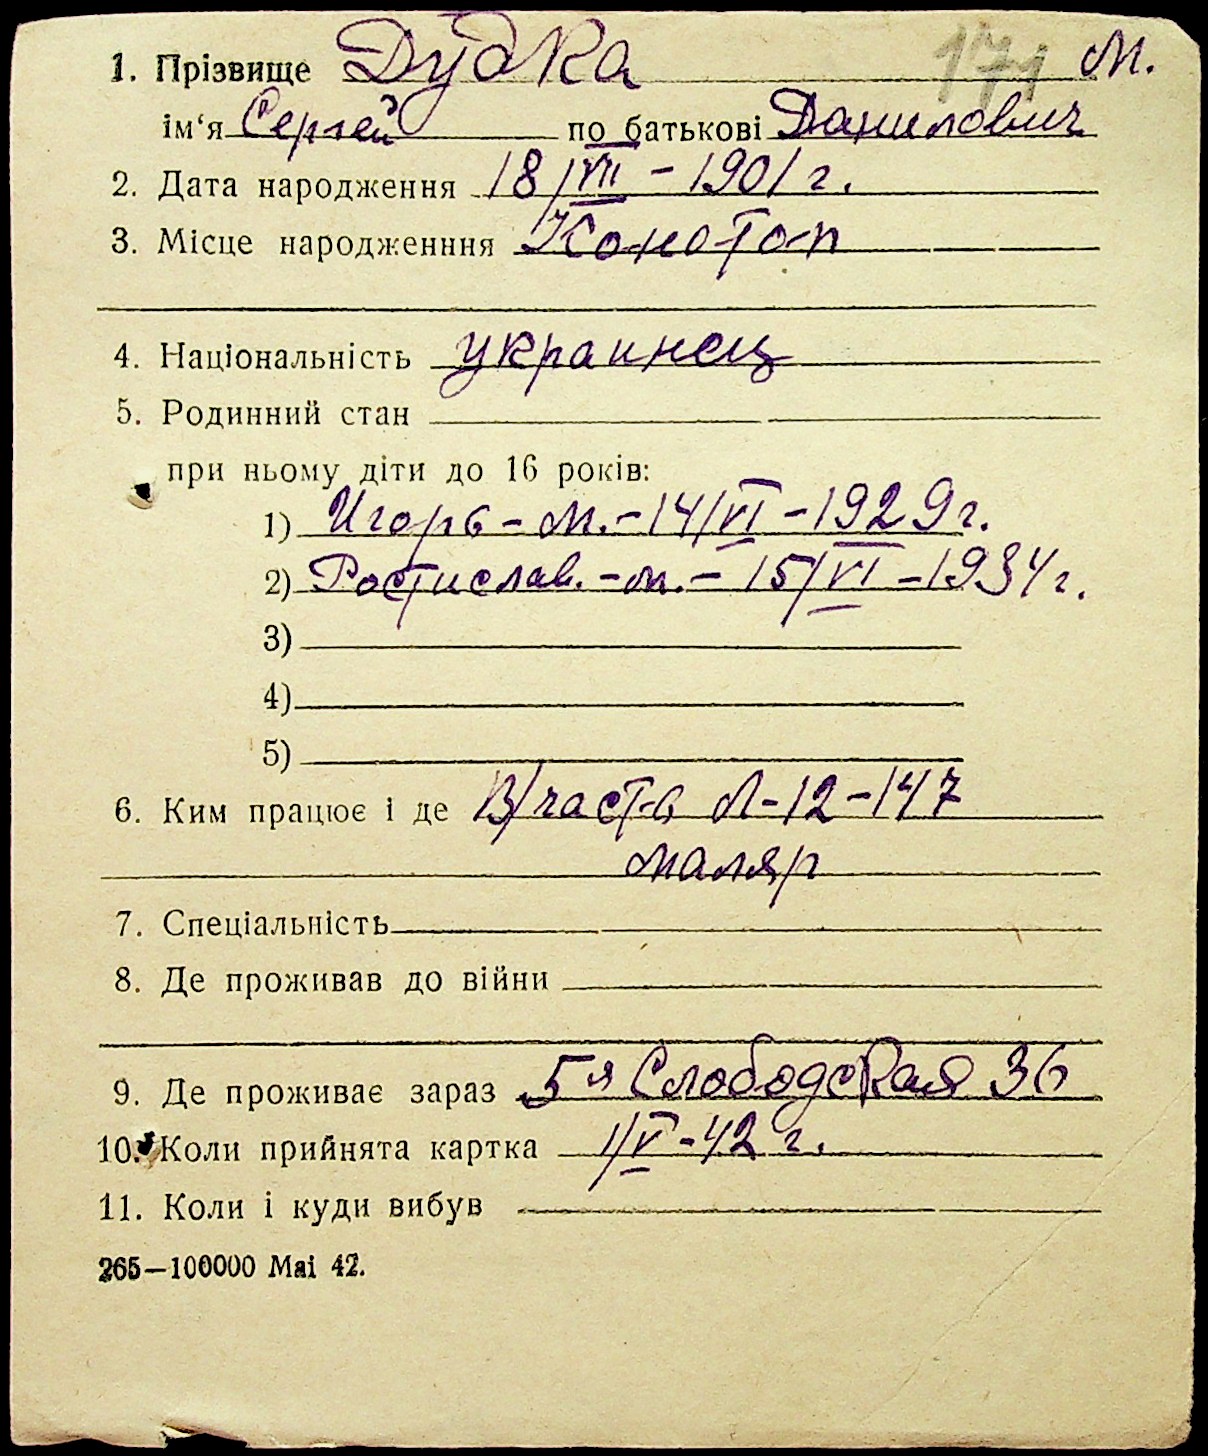 1. Прізвище Дудка 171 М.
ім‘я Сергей по батькові Данилович
2. Дата народження 18/VII - 1901 г.
3. Місце народженння Конотоп
4. Національність украинец
5. Родинний стан
при ньому діти до 16 років:
1) Игорь - м. - 14/VI - 1929 г.
2) Ростислав. - м. - 15/VI - 1934 г.
3)
4)
5)
6. Ким працює і де В/часть Л-12-147
маляр
7. Спеціальність
8. Де проживав до війни
9. Де проживає зараз 5я Слободская 36
10. Коли прийнята картка 1/V - 42 г.
11. Коли і куди вибув
265—100000 Маі 42.